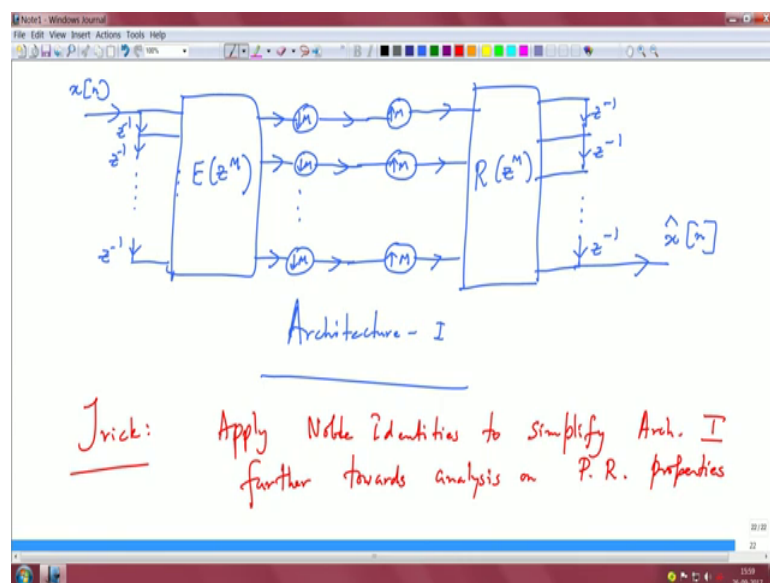 Note1 - Windows Journal
File Edit View Insert Actions Tools Help
100%
B I
x[n]
z⁻¹
z⁻¹
z⁻¹
E(z^M)
↓M
↓M
↓M
↑M
↑M
↑M
R(z^M)
z⁻¹
z⁻¹
z⁻¹
x̂[n]
Architecture - I
Trick: Apply Noble Identities to simplify Arch. I
further towards analysis on P.R. properties
22/22
22
15:59